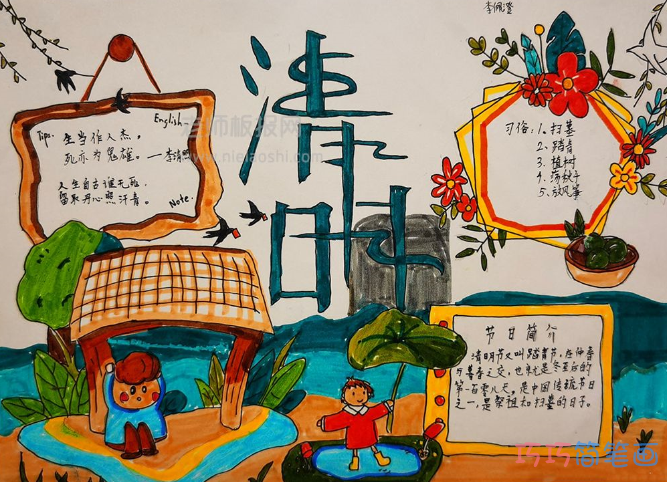 李佩滢
清明
Tips:
English
生当作人杰。
死亦为鬼雄。—李清照
人生自古谁无死
留取丹心照汗青。
Note.
习俗:1、扫墓
2、踏青
3、植树
4、荡秋千
5、放风筝
节日简介
清明节又叫踏青节,在仲春
与暮春之交,也就是冬至后的
第一百零八天。是中国传统节日
之一,是祭祖和扫墓的日子。
老师板报网
www.nielaoshi.com
巧巧简笔画